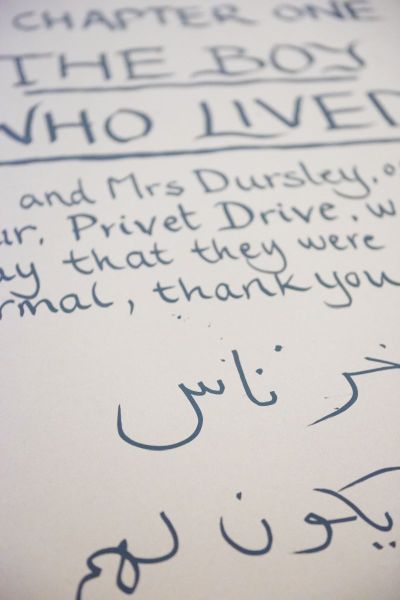 CHAPTER ONE
THE BOY
WHO LIVED
and Mrs Dursley, o
ur, Privet Drive, w
ay that they were
rmal, thank you
خر ناس
يكون لهم